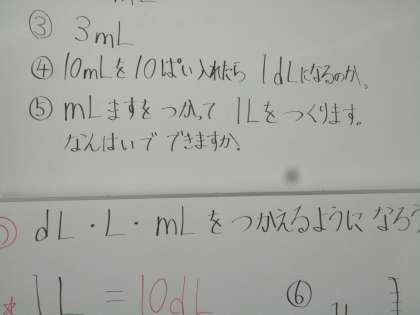 ③ 3mL
④ 10mLを10ぱい入れたら 1dLになるのか。
⑤ mLますを つかって 1Lを つくります。
なんはいで できますか?
dL・L・mLを つかえるように なろう
1L = 10dL
⑥